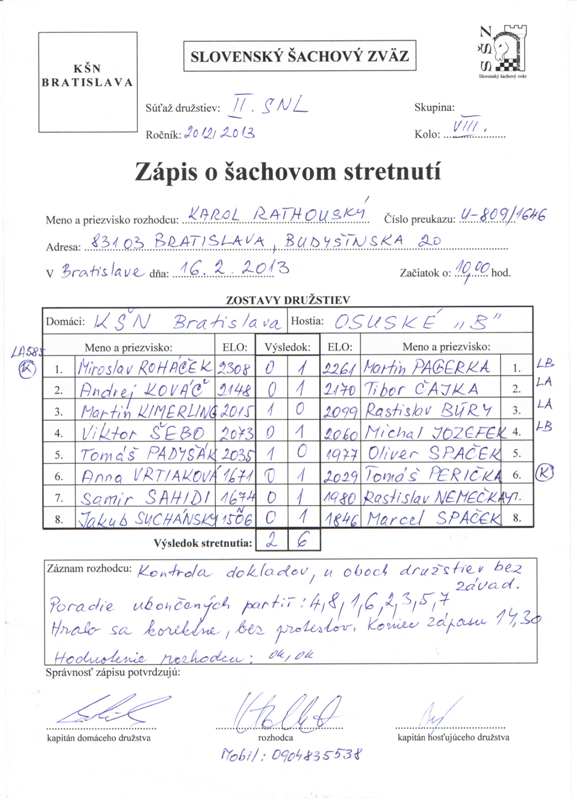 KŠN
BRATISLAVA
SLOVENSKÝ ŠACHOVÝ ZVÄZ
SŠZ
Slovenský šachový zväz
Súťaž družstiev: II. SNL
Skupina:
Ročník: 2012/2013
Kolo: VIII.
Zápis o šachovom stretnutí
Meno a priezvisko rozhodcu: KAROL RATHOUSKÝ Číslo preukazu: U-809/1646
Adresa: 83103 BRATISLAVA, BUDYŠÍNSKA 20
V Bratislave dňa: 16.2.2013 Začiatok o: 10,00 hod.
ZOSTAVY DRUŽSTIEV
Domáci: KŠN Bratislava Hostia: OSUSKÉ „B"
Meno a priezvisko: ELO: Výsledok: ELO: Meno a priezvisko:
(K) 1. Miroslav ROHÁČEK 2308 0 1 2261 Martin PAGERKA 1. LB
2. Andrej KOVÁČ 2148 0 1 2170 Tibor ČAJKA 2. LA
3. Martin KIMERLING 2015 1 0 2099 Rastislav BÚRY 3. LA
4. Viktor ŠEBO 2073 0 1 2060 Michal JOZEFEK 4. LB
5. Tomáš PADYŠÁK 2035 1 0 1977 Oliver SPAČEK 5.
6. Anna VRTIAKOVÁ 1671 0 1 2029 Tomáš PERIČKA 6. (K)
7. Samir SAHIDI 1674 0 1 1980 Rastislav NEMEČKAY 7.
8. Jakub SUCHÁNSKY 1506 0 1 1846 Marcel SPAČEK 8.
Výsledok stretnutia: 2 6
Záznam rozhodcu: Kontrola dokladov, u oboch družstiev bez
závad.
Poradie ukončených partií: 4,8,1,6,2,3,5,7
Hralo sa korektne, bez protestov. Koniec zápasu 14,30
Hodnotenie rozhodcu: ok, ok
Správnosť zápisu potvrdzujú:
kapitán domáceho družstva rozhodca kapitán hosťujúceho družstva
Mobil: 0904835538